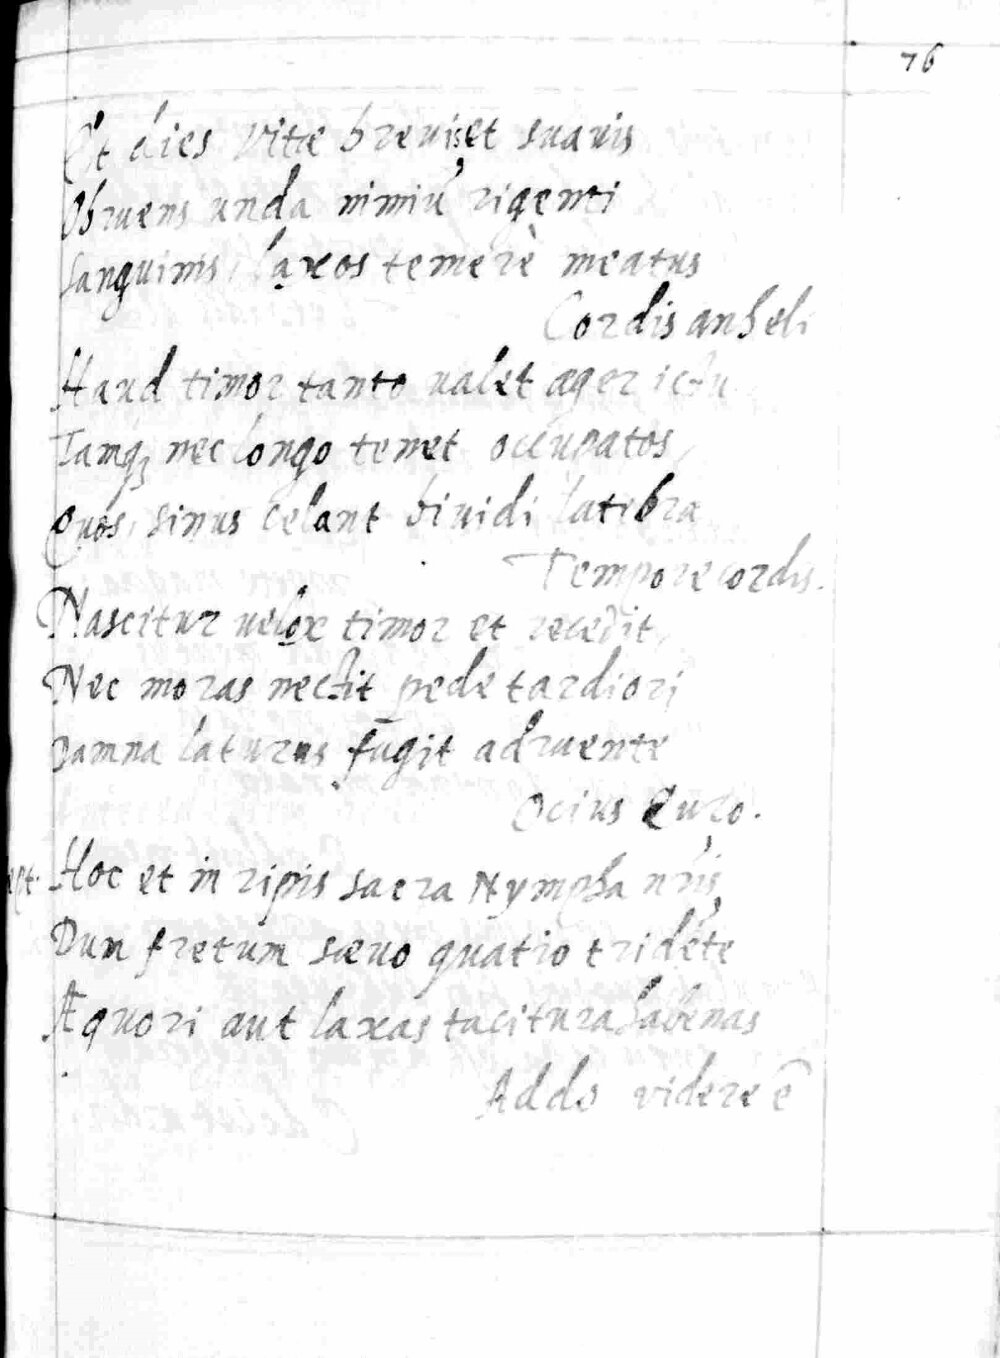 76
Et dies vitæ breuis et suauis
Obruens unda nimiũ rigenti
Sanguinis, laxos temerè meatus
Cordis anheli
Haud timor tanto ualet æger ictu
Tamq; nec longo tenet occupatos,
Quos, sinus celant biuidi latebra
Tempore cordis.
Nascitur uelox timor et recedit,
Nec moras nectit pede tardiori
Damna laturus fugit adruente
Ocius Euro.
ept. Hoc et in ripis sacra Nympha
Dum fretum sæuo quatio tridẽte
Æquori aut laxas tacitura habenas
Addo videre ẽ